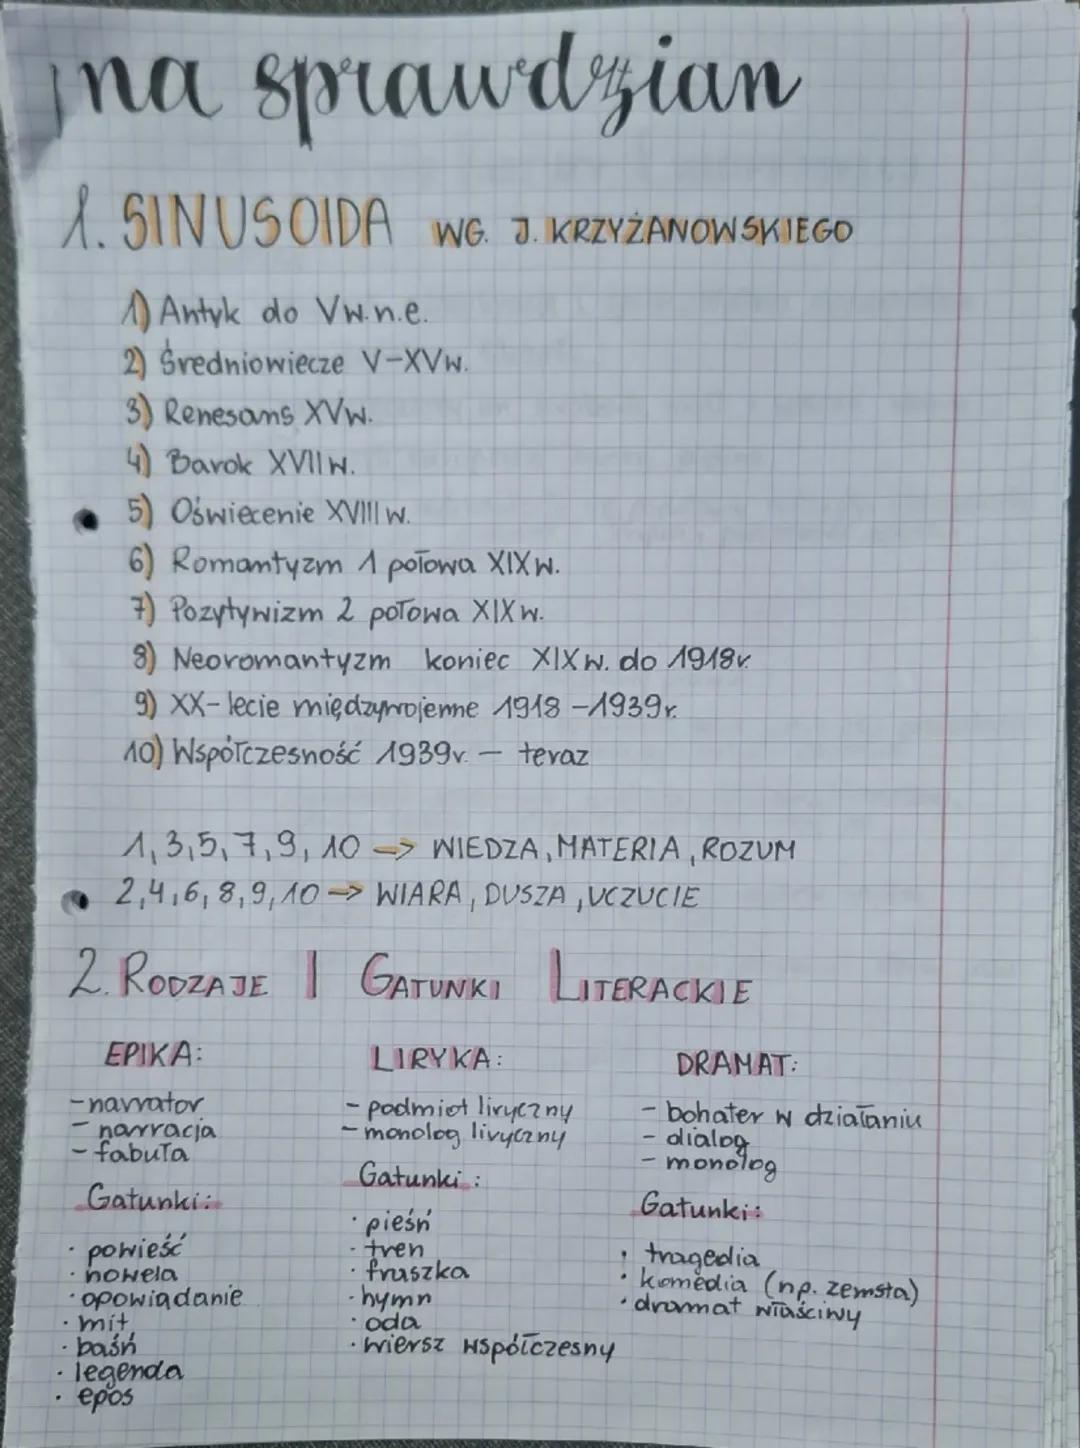 na sprawdzian
1. SINUSOIDA WG. J. KRZYŻANOWSKIEGO
1) Antyk do V w.n.e.
2) Średniowiecze V-XV w.
3) Renesans XV w.
4) Barok XVII w.
5) Oświecenie XVIII w.
6) Romantyzm 1 połowa XIX w.
7) Pozytywizm 2 połowa XIX w.
8) Neoromantyzm koniec XIX w. do 1918r.
9) XX-lecie międzywojenne 1918-1939r.
10) Współczesność 1939r. - teraz
1,3,5,7,9,10 -> WIEDZA, MATERIA, ROZUM
2,4,6,8,9,10 -> WIARA, DUSZA, UCZUCIE
2. RODZAJE I GATUNKI LITERACKIE
EPIKA:
- narrator
- narracja
- fabuła
Gatunki:
· powieść
· nowela
· opowiadanie
· mit
· baśń
· legenda
· epos
LIRYKA:
- podmiot liryczny
- monolog liryczny
Gatunki:
· pieśń
· tren
· fraszka
· hymn
· oda
· wiersz współczesny
DRAMAT:
- bohater w działaniu
- dialog
- monolog
Gatunki:
· tragedia
· komedia (np. zemsta)
· dramat właściwy